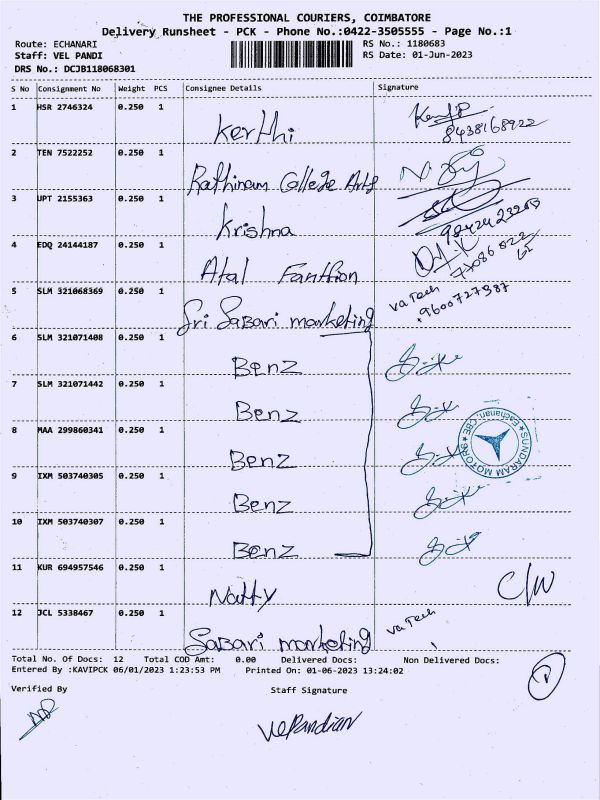 THE PROFESSIONAL COURIERS, COIMBATORE
Delivery Runsheet - PCK - Phone No.:0422-3505555 - Page No.:1
Route: ECHANARI RS No.: 1180683
Staff: VEL PANDI RS Date: 01-Jun-2023
DRS No.: DCJB118068301
S No Consignment No Weight PCS Consignee Details Signature
1 HSR 2746324 0.250 1 Kerthi
8438168922
2 TEN 7522252 0.250 1 Rathinam College Arts
3 UPT 2155363 0.250 1 Krishna
4 EDQ 24144187 0.250 1 Atal
5 SLM 321068369 0.250 1 Sri Sabari marketing va Tech
9600727387
6 SLM 321071408 0.250 1 Benz
7 SLM 321071442 0.250 1 Benz
8 MAA 299860341 0.250 1 Benz
SUNDARAM MOTORS
Eachanari, CBE
9 IXM 503740305 0.250 1 Benz
10 IXM 503740307 0.250 1 Benz
11 KUR 694957546 0.250 1 Natty C/W
12 JCL 5338467 0.250 1 Sabari marketing va Tech
Total No. Of Docs: 12 Total COD Amt: 0.00 Delivered Docs: Non Delivered Docs:
Entered By :KAVIPCK 06/01/2023 1:23:53 PM Printed On: 01-06-2023 13:24:02
Verified By Staff Signature
VelPandian